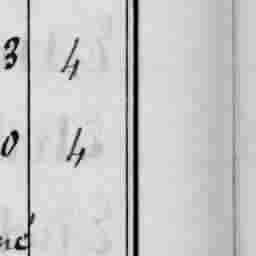 3 4
0 4
né